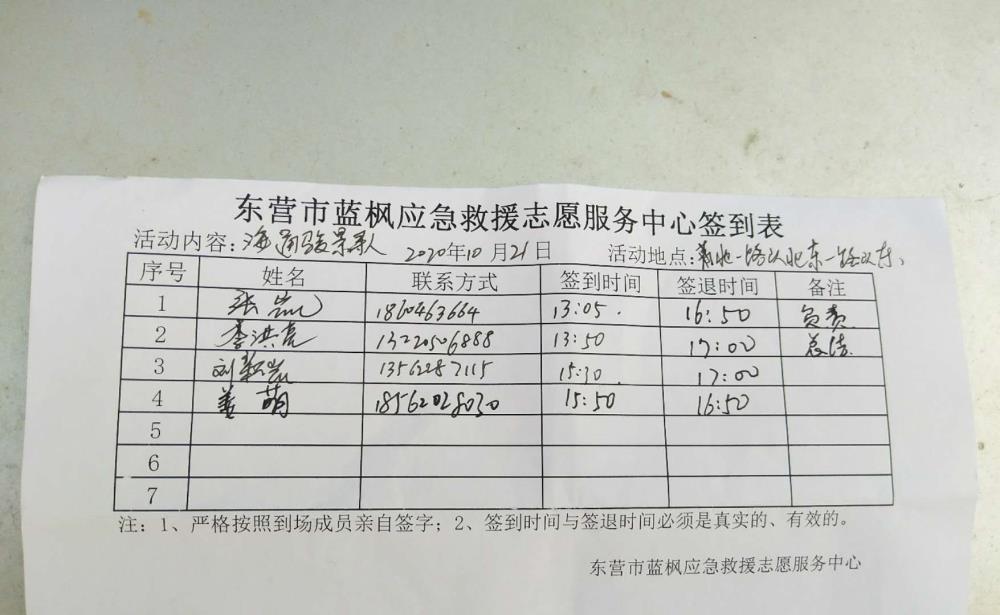 东营市蓝枫应急救援志愿服务中心签到表
活动内容：海通骏景 2020年10月21日 活动地点：
序号 姓名 联系方式 签到时间 签退时间 备注
1 张 1860463664 13:05. 16:50 负责
2 李洪亮 13220506888 13:50 17:00 总结
3 刘 13562287115 15:30 17:00
4 姜萌 18562028030 15:50 16:50
5
6
7
注：1、严格按照到场成员亲自签字；2、签到时间与签退时间必须是真实的、有效的。
东营市蓝枫应急救援志愿服务中心